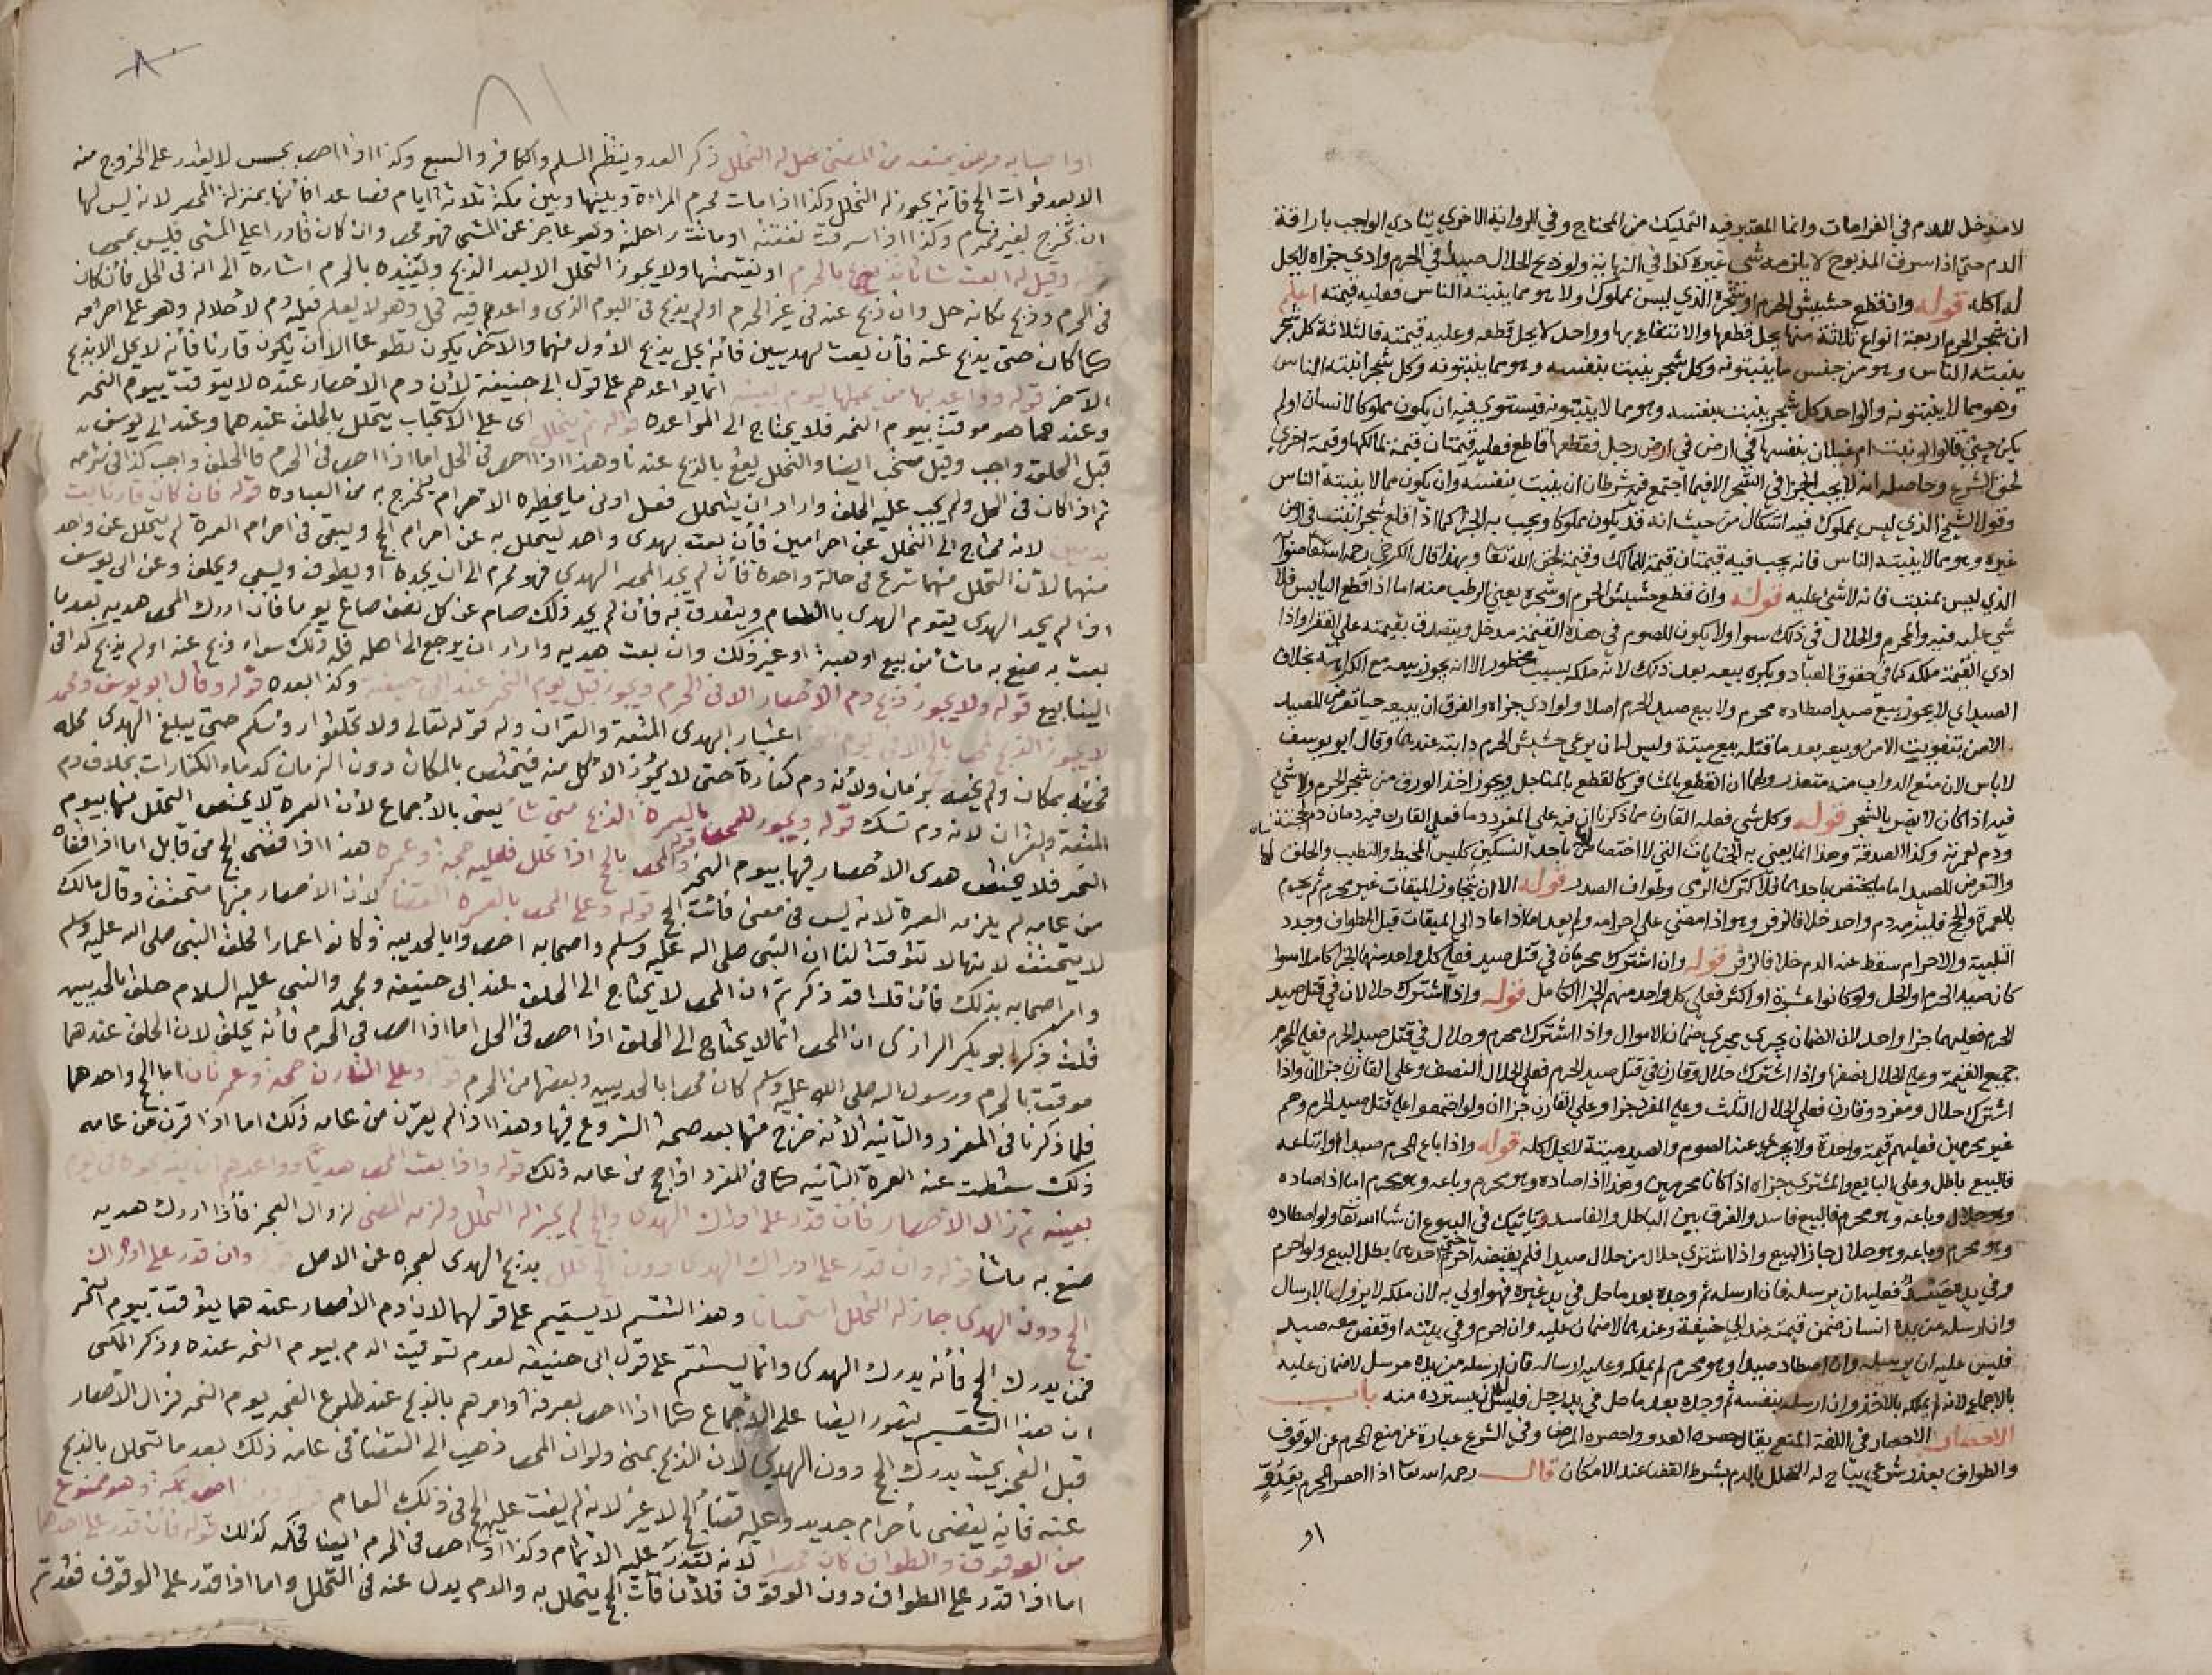 لا مدخل للدم في الغرامات وانما المعتبر فيه التمليك من المحتاج وفي الرواية الاخري يتادي الواجب باراقة
الدم حتي اذا سرق المذبوح لا يلزمه شي غيره كذا في النهاية ولو ذبح الحلال صيدا في الحرم وادي جزاه لا يحل
له اكله قوله وان قطع حشيش الحرم او شجره الذي ليس بمملوك ولا هو مما ينبته الناس فعليه قيمته اعلم
ان شجر الحرم اربعة انواع ثلاثة منها يحل قطعها والانتفاع بها وواحد لا يحل قطعه وعليه قيمته فالثلاثة كل شجر
ينبته الناس وهو من جنس ما ينبتونه وكل شجر ينبت بنفسه وهو مما ينبتونه وكل شجر انبته الناس
وهو مما لا ينبتونه والواحد كل شجر ينبت بنفسه وهو مما لا ينبتونه فيستوي فيه ان يكون مملوكا لانسان او لم
يكن حيتي قالوا لو نبتت ام غيلان بنفسها في ارض في ارض رجل فقطعها قاطع فعليه قيمتان قيمة لمالكها وقيمة اخري
لحق الشرع وحاصله انه لا يجب الجزا في الشجر الا فيما اجتمع فيه شرطان ان ينبت بنفسه وان يكون مما لا ينبته الناس
وقول الشيخ الذي ليس بمملوك فيه اشكال من حيث انه قد يكون مملوكا ويجب به الجزا كما اذا قلع شجرا نبتت في ارض
غيره وهو مما لا ينبته الناس فانه يجب فيه قيمتان قيمة للمالك وقيمة لحق الله تعا وبهذا قال الكرخي رحمه الله تعا
الذي ليس بمنبت فانه لا شي عليه قوله وان قطع حشيش الحرم او شجره يعني الرطب منه اما اذا قطع اليابس فلا
شي عليه فيه والمحرم والحلال في ذلك سوا ولا يكون للصوم في هذه القيمة مدخل ويتصدق بقيمته علي الفقرا واذا
ادي القيمة ملكه كما في حقوق العباد ويكره بيعه بعد ذلك لانه ملكه بسبب محظور الا انه يجوز بيعه مع الكراهة بخلاف
الصيد اي لا يجوز بيع صيد اصطاده محرم ولا بيع صيد الحرم اصلا ولو ادي جزاه والفرق ان بيعه حيا تعرض للصيد
الامن بتفويت الامن وبيعه بعد ما قتله بيع ميتة وليس له ان يرعي حشيش الحرم دابته عندهما وقال ابو يوسف
لا باس لان منع الدواب منه متعذر ولهما ان القطع بالمشافر كالقطع بالمناجل ويجوز اخذ الورق من شجر الحرم ولا شي
فيه اذا كان لا يضر بالشجر قوله وكل شي فعله القارن مما ذكرنا ان فيه علي المفرد دما فعلي القارن فيه دمان دم لحجته
ودم لعمرته وكذا الصدقة وهذا انما يعني به الجنايات التي لا اختصاص لها باحد النسكين كلبس المخيط والتطيب والحلق
والتعرض للصيد اما ما يختص باحدهما فلا كترك الرمي وطواف الصدر قوله الا ان يتجاوز الميقات غير محرم ثم يحرم
بالعمرة والحج فيلزمه دم واحد خلافا لزفر وهو اذا مضي علي احرامه ولم يعد اما اذا عاد الي الميقات قبل الطواف وجدد
التلبية والاحرام سقط عنه الدم خلافا لزفر قوله وان اشترك محرمان في قتل صيد فعلي كل واحد منهما الجزا كاملا سوا
كان صيد الحرم او الحل ولو كانوا عشرة او اكثر فعلي كل واحد منهم الجزا الكامل قوله واذا اشترك حلالان في قتل صيد
الحرم فعليهما جزا واحد لان الضمان يجري مجري ضمان الاموال واذا اشترك محرم وحلال في قتل صيد الحرم فعلي المحرم
جميع القيمة وعلي الحلال نصفها واذا اشترك حلال وقارن في قتل صيد الحرم فعلي الحلال النصف وعلي القارن جزاان واذا
اشترك حلال ومفرد وقارن فعلي الحلال الثلث وعلي المفرد جزا وعلي القارن جزاان ولو اجتمعوا علي قتل صيد الحرم وهم
غير محرمين فعليهم قيمة واحدة ولا يجزي عنه الصوم والصيد ميتة لا يحل اكله قوله واذا باع المحرم صيدا او ابتاعه
فالبيع باطل وعلي البايع والمشتري جزاه اذا كانا محرمين وهذا اذا صاده وهو محرم وباعه وهو محرم اما اذا صاده
وهو حلال وباعه وهو محرم فالبيع فاسد والفرق بين الباطل والفاسد ياتيك في البيوع ان شا الله تعا ولو اصطاده
وهو محرم وباعه وهو حلال جاز البيع واذا اشتري حلال من حلال صيدا فلم يقبضه حتي احرم احدهما بطل البيع ولو احرم
وفي يده صيد فعليه ان يرسله فان ارسله ثم وجده بعد ما حل في يد غيره فهو اولي به لان ملكه لا يزول بالارسال
وان ارسله من يده انسان ضمن قيمته عند ابي حنيفة وعندهما لا ضمان عليه وان احرم وفي بيته او قفص معه صيد
فليس عليه ان يرسله وان اصطاد صيدا وهو محرم لم يملكه وعليه ارساله فان ارسله من يده مرسل لا ضمان عليه
بالاجماع لانه لم يملكه بالاخذ وان ارسله بنفسه ثم وجده بعد ما حل في يد رجل فليس له ان يسترده منه باب
الاحصار الاحصار في اللغة المنع يقال حصره العدو واحصره المرض وفي الشرع عبارة عن منع المحرم عن الوقوف
والطواف بعذر شرعي يباح له التحلل بالدم بشرط القضا عند الامكان قال رحمه الله تعا اذا احصر المحرم بعدو
او
او اصابه مرض يمنعه من المضي حل له التحلل ذكر العدو ينتظم المسلم والكافر والسبع وكذا اذا احصر بحبس لا يقدر على الخروج منه
الا بعد فوات الحج فانه يجوز له التحلل وكذا اذا مات محرم المراءة وبينها وبين مكة ثلاثة ايام فصاعدا فانها بمنزلة المحصر لانه ليس لها
ان تخرج بغير محرم وكذا اذا سرقت نفقته او ماتت راحلته وهو عاجز عن المشي فهو محصر وان كان قادرا على المشي فليس بمحصر
قوله وقيل له ابعث شاة تذبح بالحرم او بقيمتها ولا يجوز التحلل الا بعد الذبح وتقييده بالحرم اشارة الى انه في الحل فان كان
في الحرم وذبح مكانه حل وان ذبح عنه في غير الحرم او لم يذبح في اليوم الذي واعدهم فيه فحل وهو لا يعلم فعليه دم لاحلاله وهو على احرامه
كما كان حتى يذبح عنه فان بعث بهديين فانه يحل بذبح الاول منهما والآخر يكون تطوعا الا ان يكون قارنا فانه لا يحل الا بذبح
الآخر قوله وواعد بها من يحملها ليوم بعينه انما يواعدهم على قول ابي حنيفة لان دم الاحصار عنده لا يتوقت بيوم النحر
وعندهما هو موقت بيوم النحر فلا يحتاج الى المواعدة قوله ثم يتحلل اي على الاستحباب يتحلل بالحلق عندهما وعند ابي يوسف
قيل الحلق واجب وقيل مستحب ايضا والتحلل يقع بالذبح عندنا وهذا اذا احصر في الحل اما اذا احصر في الحرم فالحلق واجب كذا في شرحه
ثم اذا كان في الحل ولم يجب عليه الحلق واراد ان يتحلل فعل ادنى ما يحظره الاحرام ليخرج به من العبادة قوله فان كان قارنا بعث
بدمين لانه محتاج الى التحلل عن احرامين فان بعث بهدي واحد ليتحلل به عن احرام الحج ويبقى في احرام العمرة لم يتحلل عن واحد
منهما لان التحلل منهما شرع في حالة واحدة فان لم يجد المحصر الهدي فهو محرم الى ان يجده او يطوف ويسعي ويحلق وعن ابي يوسف
اذا لم يجد الهدي يقوم الهدي باالطعام ويتصدق به فان لم يجد ذلك صام عن كل نصف صاع يوما فان ادرك المحصر هديه بعدما
بعث به صنع به ما شا من بيع او هبة او غير ذلك وان بعث هديه واراد ان يرجع الى اهله فله ذلك سواء ذبح عنه او لم يذبح كذا في
الينابيع قوله ولا يجوز ذبح دم الاحصار الا في الحرم ويجوز قبل يوم النحر عند ابي حنيفة وكذا بعده قوله وقال ابو يوسف ومحمد
لا يجوز الذبح للمحصر بالحج الا في يوم النحر اعتبار الهدي المتعة والقران وله قوله تعالى ولا تحلقوا روسكم حتى يبلغ الهدي محله
فخصه بمكان ولم يخصه بزمان ولانه دم كفارة حتى لا يجوز الاكل منه فيختص بالمكان دون الزمان كدماء الكفارات بخلاف دم
المتعة والقران لانه دم نسك قوله ويجوز للمحصر بالعمرة الذبح متى شا يعني بالاجماع لان العمرة لا يختص التحلل منها بيوم
النحر فلا يختص هدي الاحصار فيها بيوم النحر قوله والمحصر بالحج اذا تحلل فعليه حجة وعمرة هذا اذا قضى الحج من قابل اما اذا قضاه
من عامه لم يلزمه العمرة لانه ليس في معنى فائت الحج قوله وعلى المحصر بالعمرة القضا لان الاحصار منها متحقق وقال مالك
لا يتحقق لانها لا تتوقت لنا ان النبي صلى الله عليه وسلم واصحابه احصروا بالحديبية وكانوا عمارا فحلق النبي صلى الله عليه وسلم
وامر اصحابه بذلك فان قلت قد ذكرتم ان المحصر لا يحتاج الى الحلق عند ابي حنيفة ومحمد والنبي عليه السلام حلق بالحديبيه
قلت ذكر ابو بكر الرازي ان المحصر انما لا يحتاج الى الحلق اذا احصر في الحل اما اذا احصر في الحرم فانه يحلق لان الحلق عندهما
موقت بالحرم ورسول الله صلى الله عليه وسلم كان محصرا بالحديبيه وبعضها من الحرم قوله وعلى القارن حجة وعمرتان اما الحج واحدهما
فلما ذكرنا في المفرد والثانيه لانه خرج منها بعد صحة الشروع فيها وهذا اذا لم يقرن من عامه ذلك اما اذا قرن من عامه
ذلك سقطت عنه العمرة الثانيه كما في المفرد اذا حج من عامه ذلك قوله واذا بعث المحصر هديا وواعدهم ان يذبحوه في يوم
بعينه ثم زال الاحصار فان قدر على ادراك الهدي والحج لم يجز له التحلل ولزمه المضي لزوال العجز فاذا ادرك هديه
صنع به ما شا قوله وان قدر على ادراك الهدي دون الحج تحلل بذبح الهدي لعجزه عن الاصل قوله وان قدر على ادراك
الحج دون الهدي جاز له التحلل استحسانا وهذا القسم لا يستقيم على قولهما لان دم الاحصار عندهما يتوقت بيوم النحر
فمن يدرك الحج فانه يدرك الهدي وانما يستقيم على قول ابي حنيفه لعدم توقيت الدم بيوم النحر عنده وذكر المكي
ان هذا التقسيم يتصور ايضا على الاجماع كما اذا احصر بعرفة وامرهم بالذبح عند طلوع الفجر يوم النحر فزال الاحصار
قبل الفجر بحيث يدرك الحج دون الهدي لان الذبح بمنى ولو ان المحصر ذهب الى القضا في عامه ذلك بعد ما تحلل بالذبح
عنه فانه يقضي باحرام جديد وعليه قضا الحج لا غير لانه لم يفت عليه الحج في ذلك العام قوله ومن احصر بمكة وهو ممنوع
من الوقوف والطواف كان محصرا لانه تعذر عليه الاتمام وكذا اذا احصر في الحرم ايضا فحكمه كذلك قوله فان قدر على احدهما
اما اذا قدر على الطواف دون الوقوف فلان فائت الحج يتحلل به والدم بدل عنه في التحلل واما اذا قدر على الوقوف فقد تم